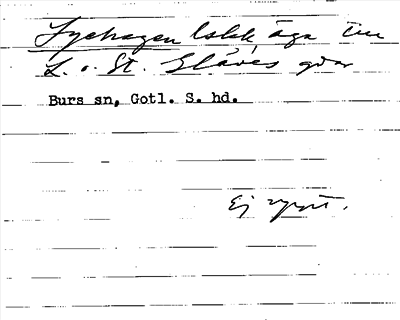 Lyehagen lskk äga till
L. o St. Glåves gdar
Burs sn, Gotl. S. hd.
Ej uppt.